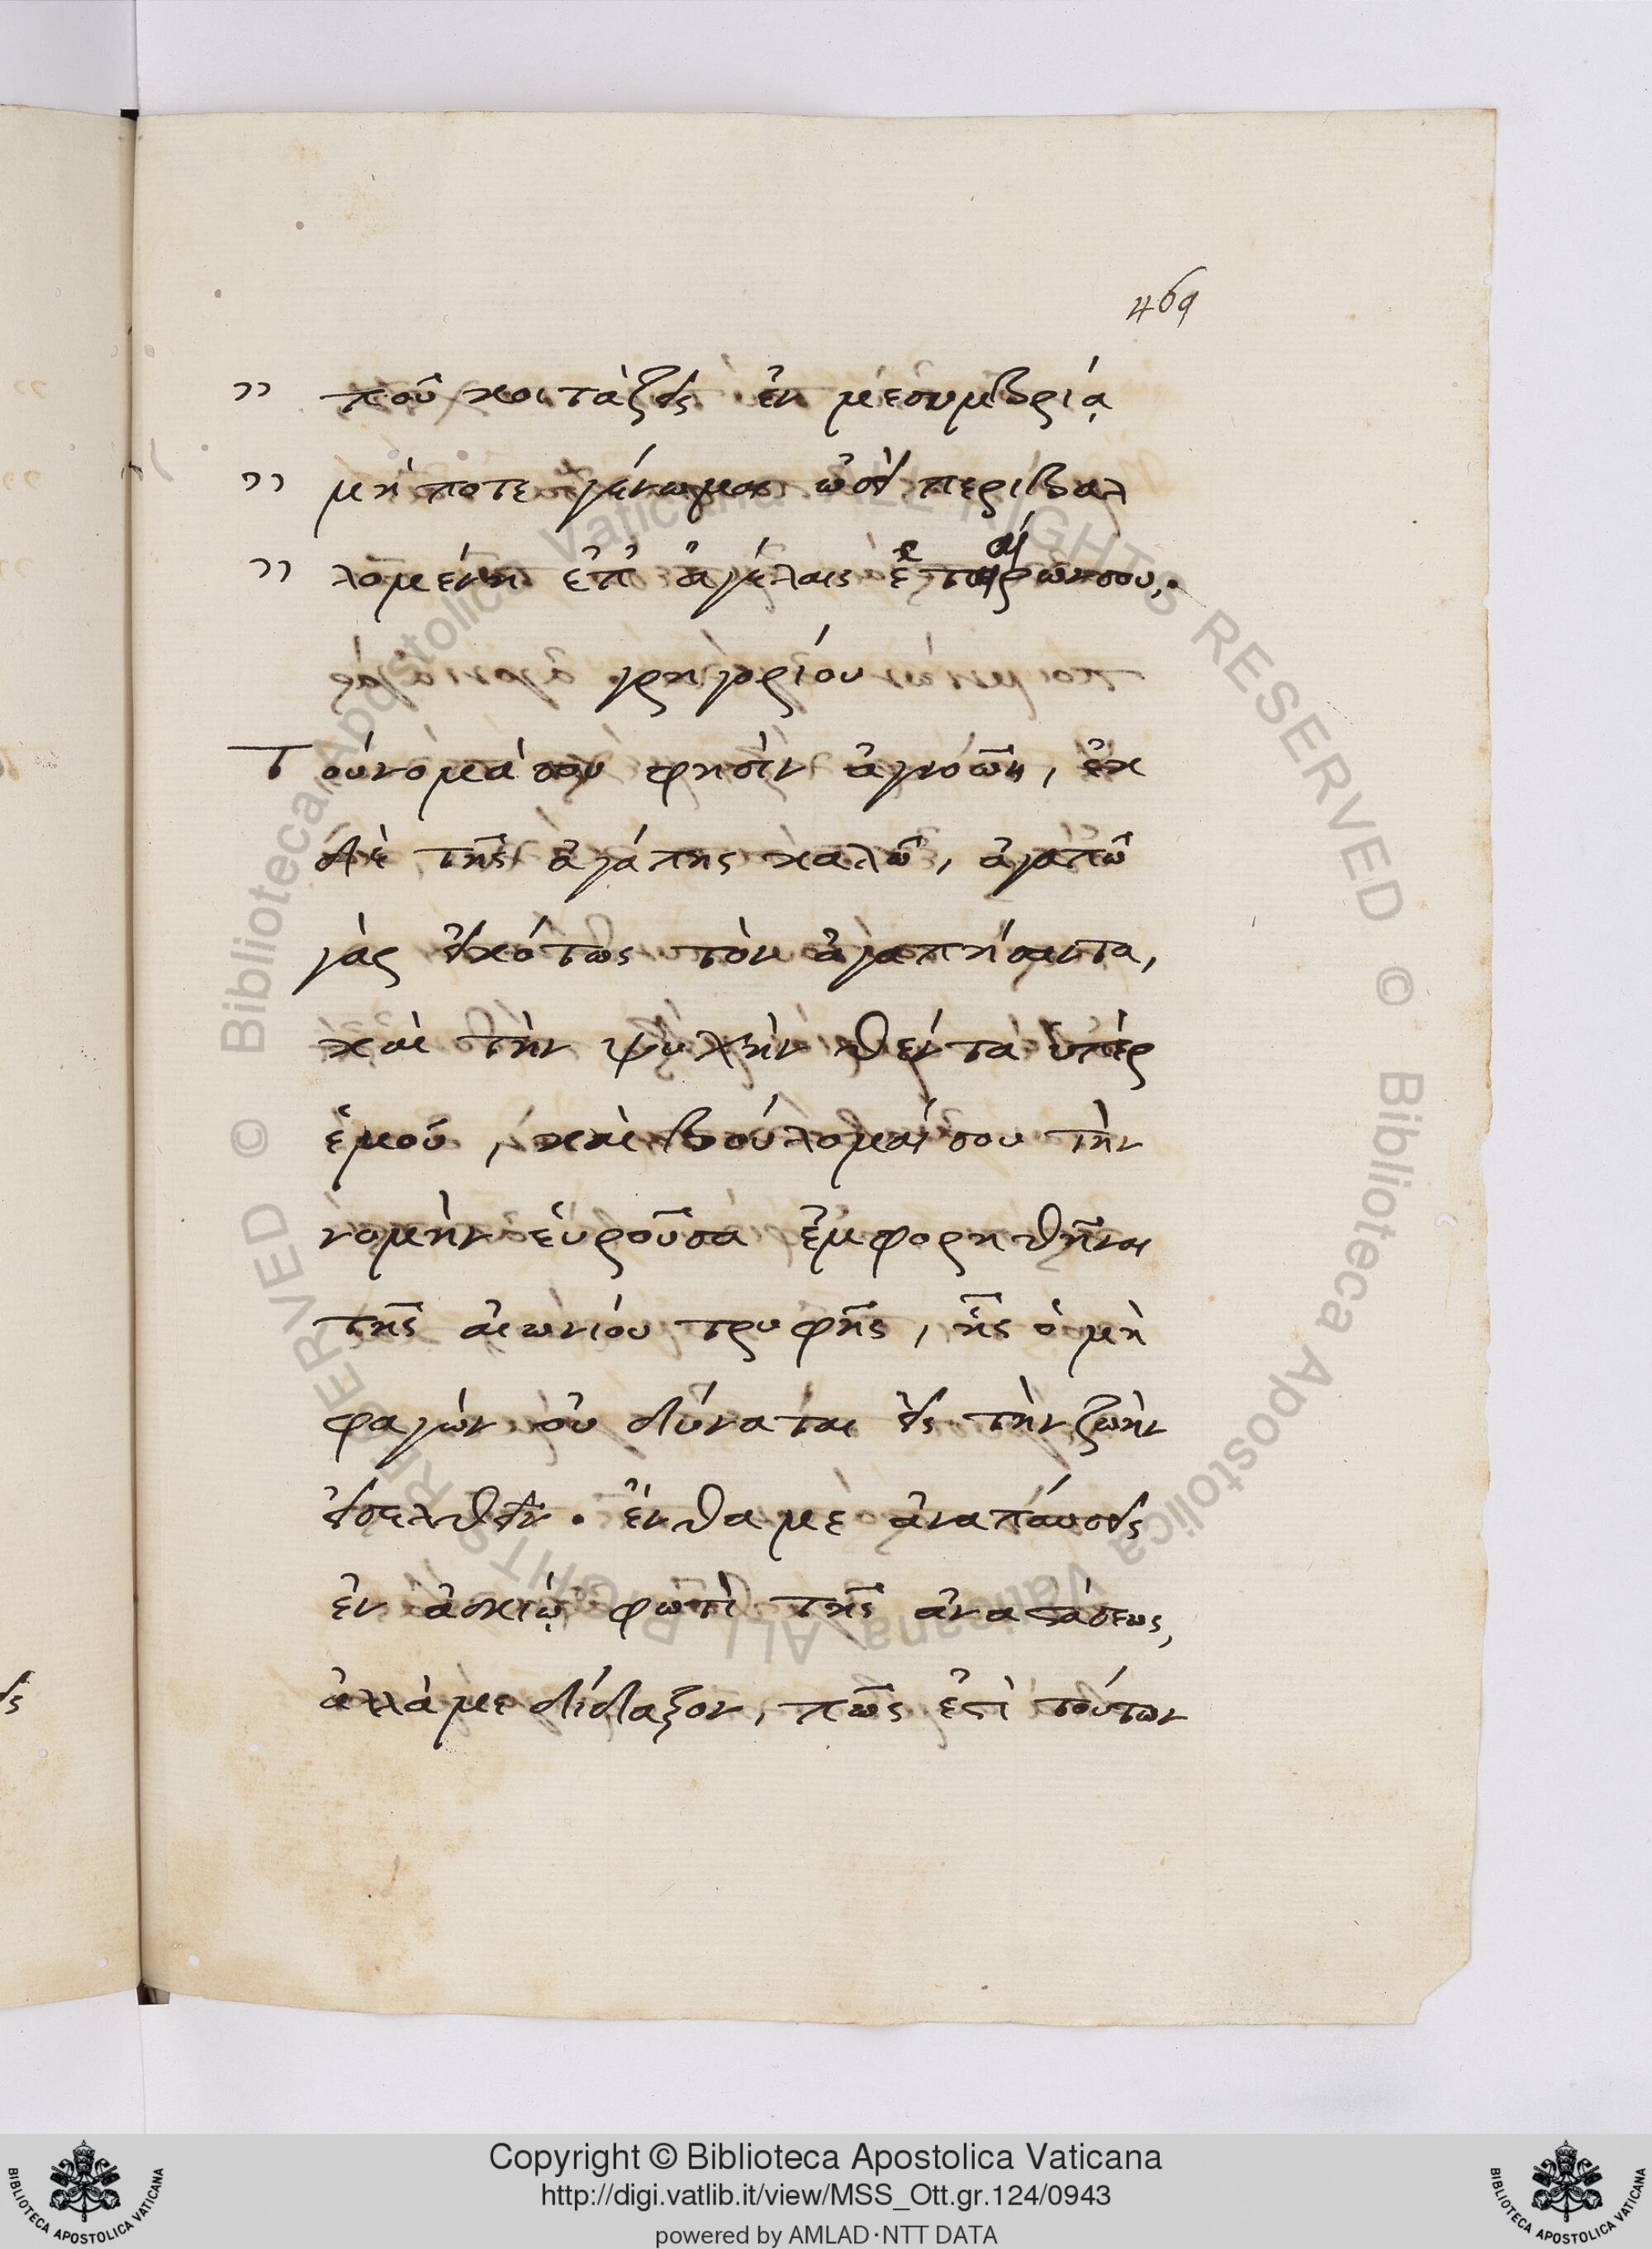 469
" ποῦ κοιτάζεις ἐν μεσημβρίᾳ
" μήποτε γένωμαι ὡσεὶ περιβαλ
" λομένη ἐπ' ἀγέλαις ἑταίρων σου.
γρηγορίου
Τοὔνομά σου φησὶν ἀγνοῶν, ἐκ
δὲ τῆς ἀγάπης καλῶ, ἀγαπῶ
γὰρ εἰκότως τὸν ἀγαπήσαντα,
καὶ τὴν ψυχὴν θέντα ὑπὲρ
ἐμοῦ, καὶ βούλομαί σου τὴν
νομὴν εὑροῦσα ἐμφορηθῆναι
τῆς αἰωνίου τρυφῆς, ἧς ὁ μὴ
φαγὼν οὐ δύναται εἰς τὴν ζωὴν
εἰσελθεῖν. ἔνθα με ἀναπαύσεις
ἐν ἀσκίῳ φωτὶ τῆς ἀναστάσεως,
ἀλλά με δίδαξον, πῶς ἐστὶ τούτων
Copyright © Biblioteca Apostolica Vaticana
http://digi.vatlib.it/view/MSS_Ott.gr.124/0943
powered by AMLAD·NTT DATA